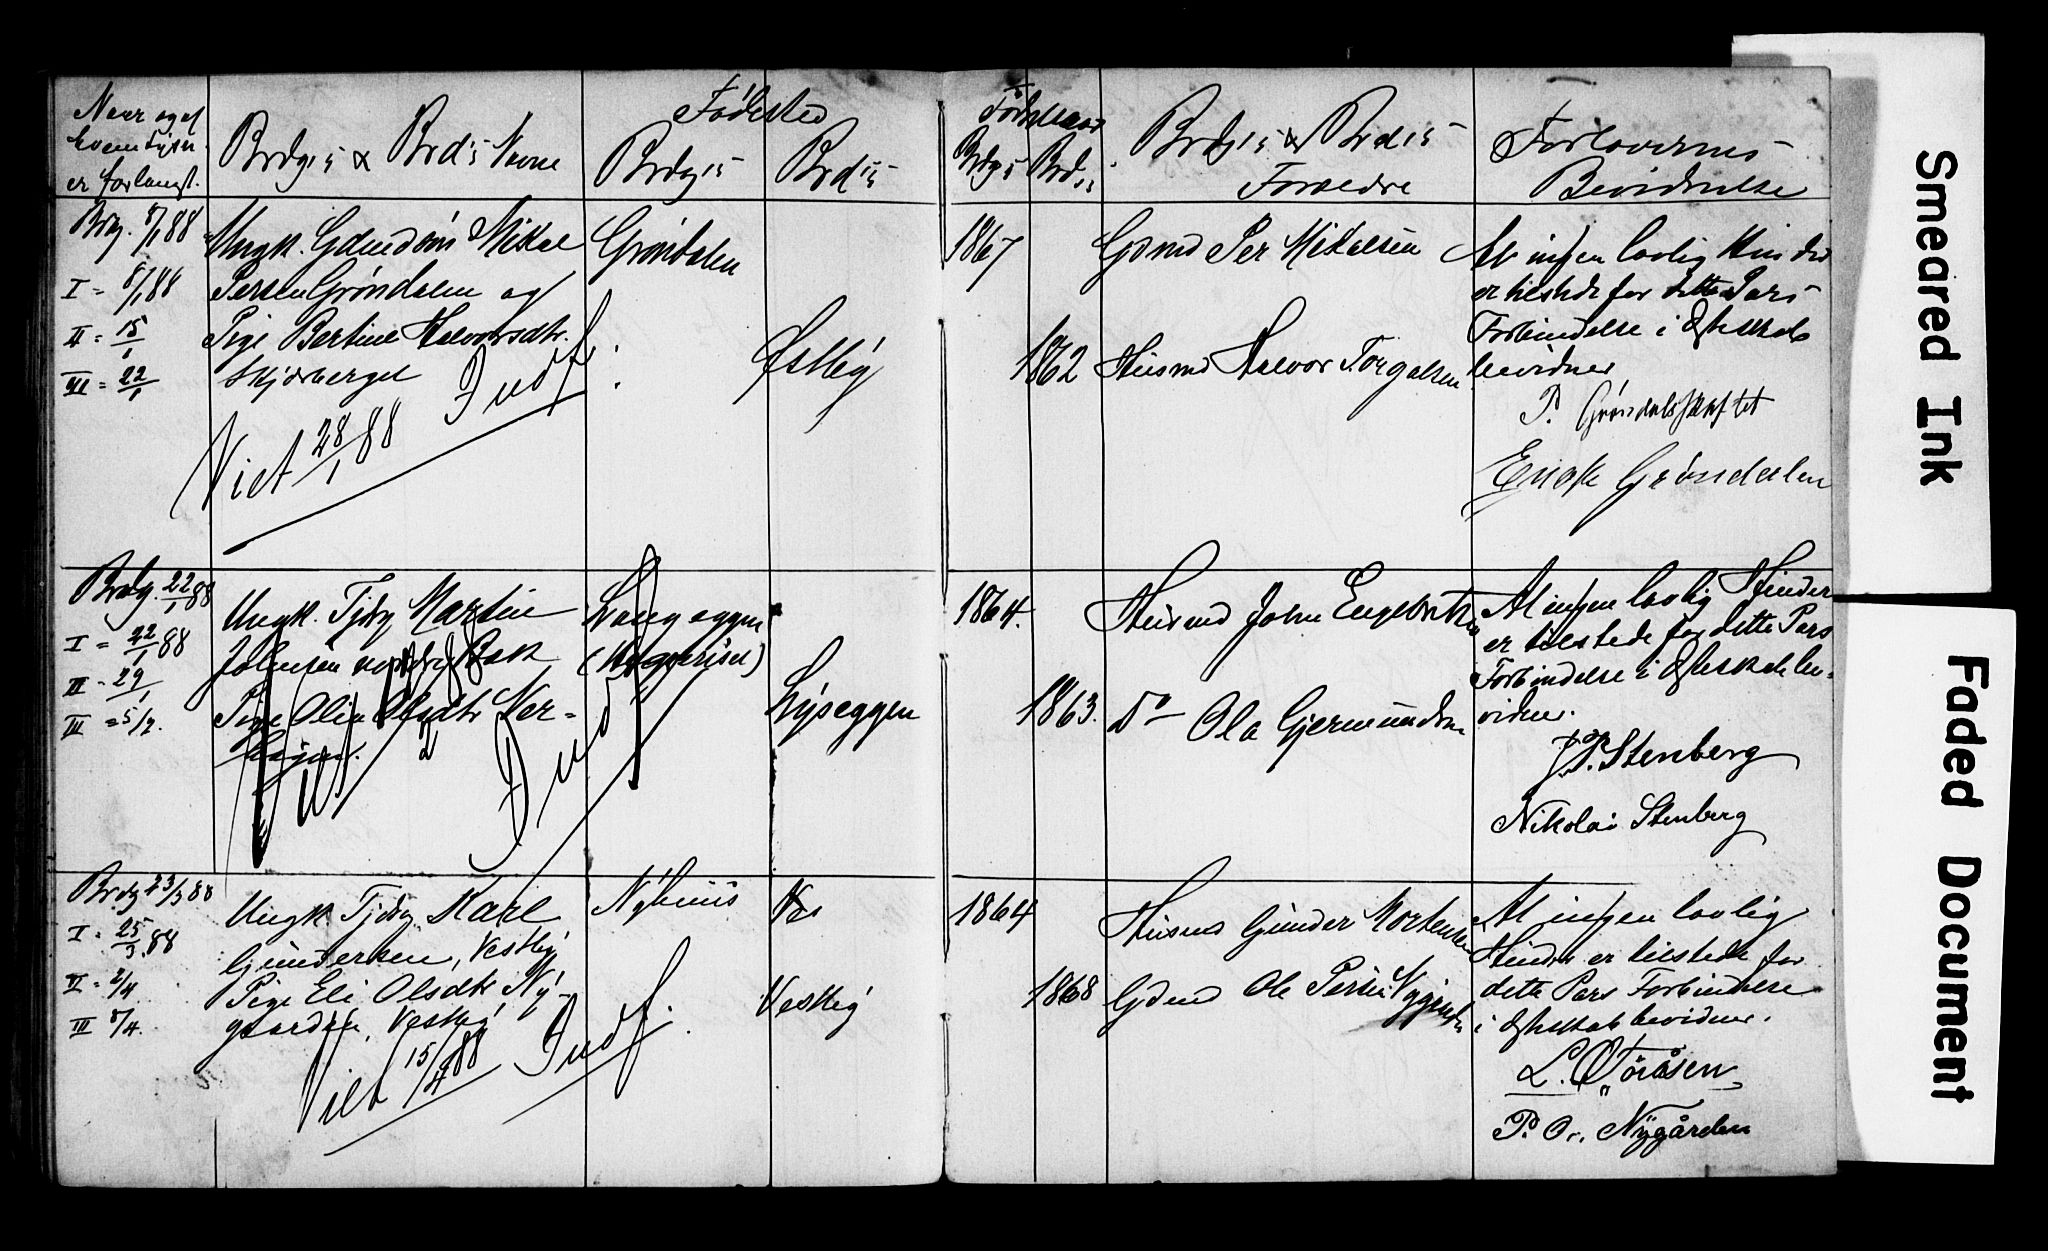 Naar og af
hvem Lysn.
er forlangt.
Brdg's & Brd's Navne
Fødested
Brdg's
Brd's
Fødselsaar
Brdg's Brd's
Brdg's & Brd's
Forældre
Forlovernes
Bevidnelse
Brdg. 8/1 88
I = 8/1 88
II = 15/1
III = 22/1
Ungk. Gdmdsøn Mikal
Persen Grøndalen og
Pige Bertine Halvorsdtr.
Skjærberget
Viet 28/1 88 Indf.
Grøndalen
Østby
1867
1862
Gdmd Per Mikalsen
Husmd Halvor Torgalsen
At ingen lovlig Hinder
er tilstede for dette Pars
Forbindelse i Ægteskab
bevidner
P. Grøndalsskaftet
Erick Grøndalen
Brdg. 22/1 88
I = 22/1 88
II = 29/1
III = 5/2.
Ungk. Tjdrg Martin
Johnsen Bak
Pige Olia Olsdtr Ner-
haugen.
Viet 88 Indf
Langeggen
Lyseggen
1864.
1863.
Husmd John Engebretsen
Do Ola Gjermundsen
At ingen lovlig Hinder
er tilstede for dette Pars
Forbindelse i Ægteskab be-
vidner.
J.P. Stenberg
Nikolai Stenberg
Brdg 23/3 88
I = 25/3 88
II = 2/4
III 8/4.
Ungk. Tjdrg Karl
Gundersen, Vestby
Pige Eli Olsdtr Ny-
gaarden, Vestby
Viet 15/4 88 Indf.
Nyhuus
Vestby
1864
1868
Husmd Gunder Mortensen
Gdmd Ole Persen Nygaarden
At ingen lovlig
Hinder er tilstede for
dette Pars Forbindelse
i Ægteskab bevidner.
L. O. Töråsen
P. O. Nÿgården
Smeared Ink
Faded Document